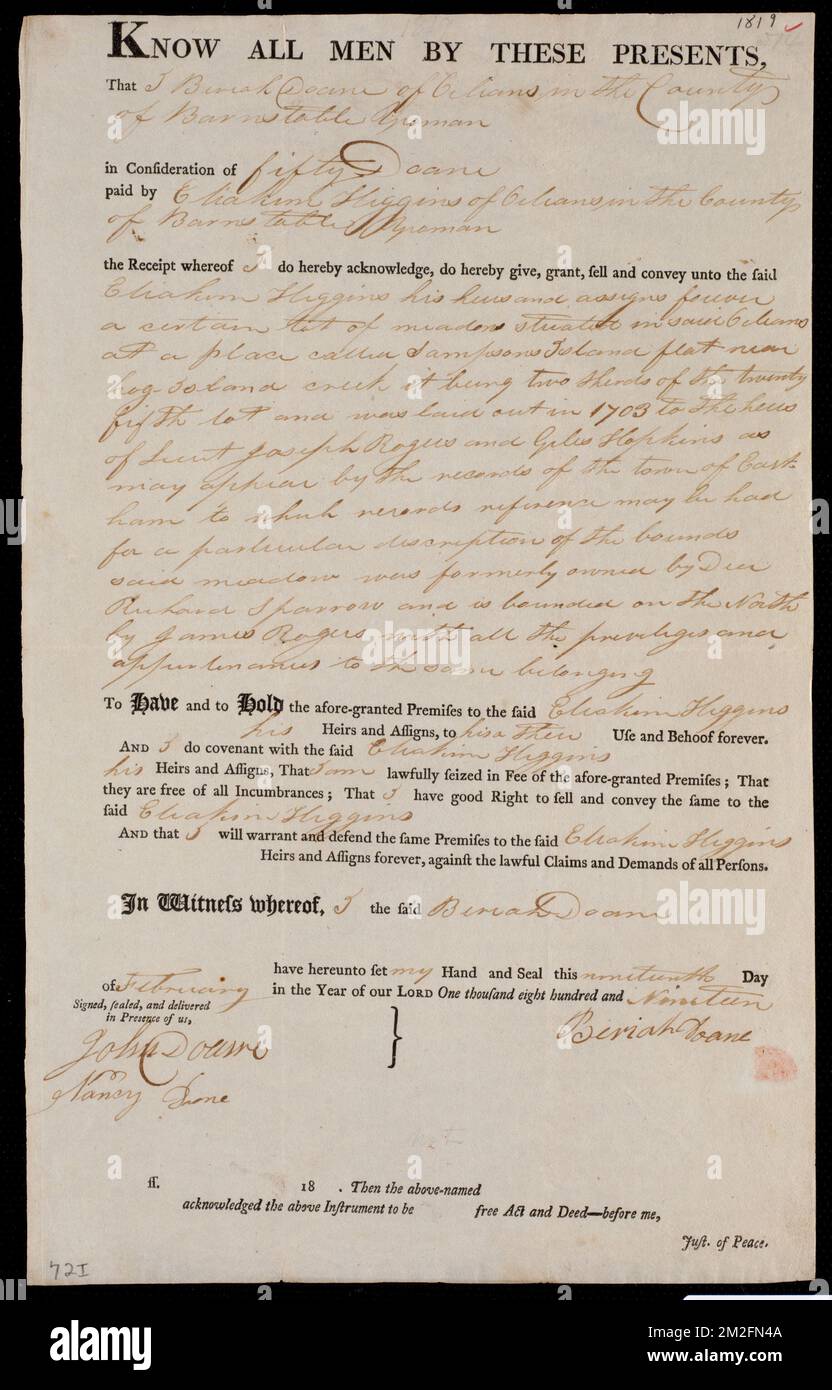 1819
KNOW ALL MEN BY THESE PRESENTS,
That I Beriah Doane of Orleans in the County
of Barnstable Yeoman
in Conſideration of fifty Doane
paid by Eliakim Higgins of Orleans, in the County
of Barnstable Yeoman
the Receipt whereof I do hereby acknowledge, do hereby give, grant, ſell and convey unto the ſaid
Eliakim Higgins his heirs and assigns forever
a certain lot of meadow situated in said Orleans
at a place called Sampsons Island flat near
hog-Island creek it being two therds of the twenty
fifth lot and was laid out in 1703 to the heirs
of Lieut Joseph Rogers and Giles Hopkins as
may appear by the records of the town of East-
ham to which records reference may be had
for a particular discription of the bounds
said meadow was formerly owned by Dea
Richard Sparrow and is bounded on the North
by James Rogers with all the privileges and
appurtenances to the same belonging
To Have and to Hold the afore-granted Premiſes to the ſaid Eliakim Higgins
his Heirs and Aſſigns, to his & their Uſe and Behoof forever.
AND I do covenant with the ſaid Eliakim Higgins
his Heirs and Aſſigns, That I am lawfully ſeized in Fee of the afore-granted Premiſes; That
they are free of all Incumbrances; That I have good Right to ſell and convey the ſame to the
ſaid Eliakim Higgins
AND that I will warrant and defend the ſame Premiſes to the ſaid Eliakim Higgins
Heirs and Aſſigns forever, againſt the lawful Claims and Demands of all Perſons.
In Witneſs whereof, I the ſaid Beriah Doane
have hereunto ſet my Hand and Seal this nineteenth Day
of February in the Year of our LORD One thouſand eight hundred and Nineteen
Signed, ſealed, and delivered
in Presence of us,
Beriah Doane
John Doane
Nancy Done
ſſ. 18 . Then the above-named
acknowledged the above Inſtrument to be free Act and Deed—before me,
Juſt. of Peace.
72I
alamy
Image ID: 2M2FN4A
www.alamy.com